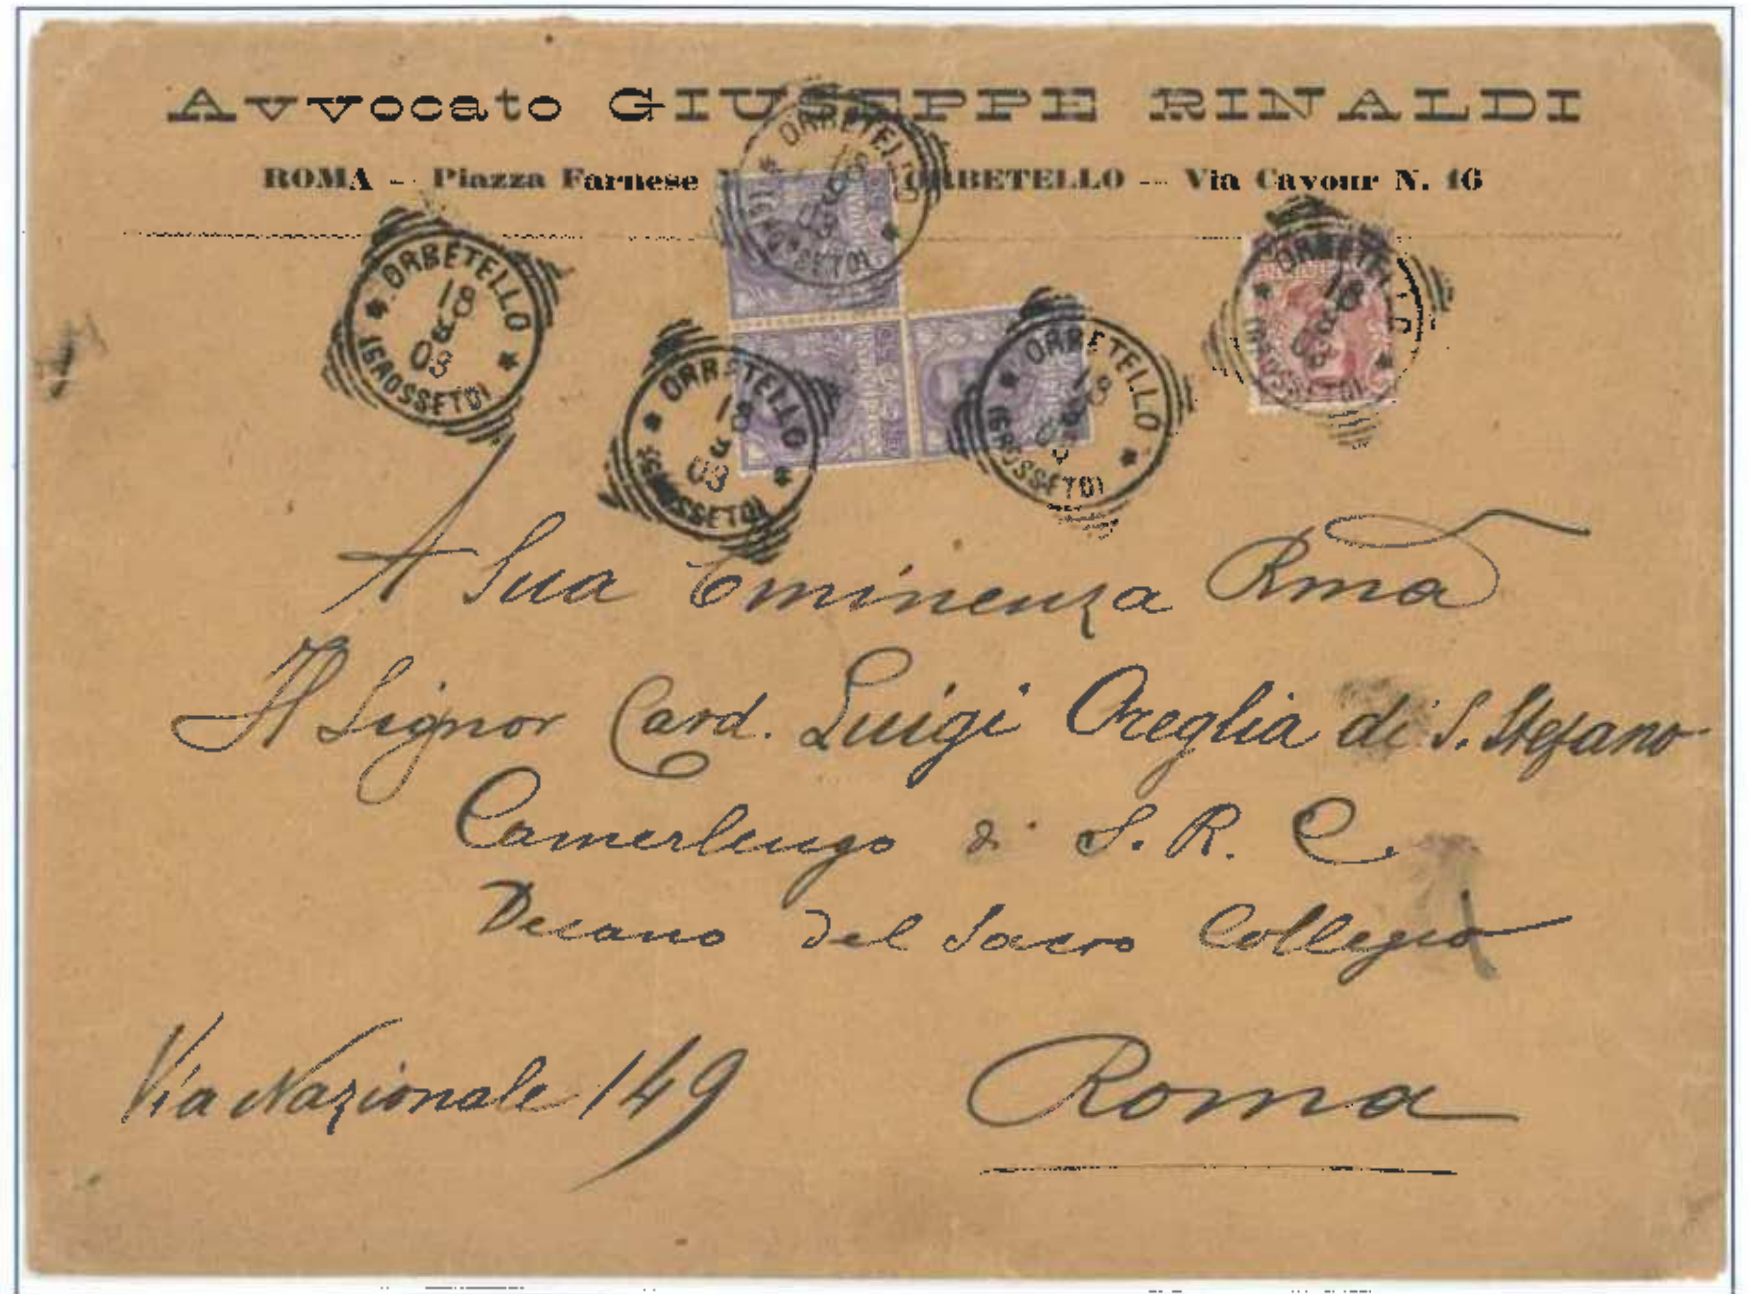 Avvocato GIUSEPPE RINALDI
ROMA - Piazza Farnese ORBETELLO - Via Cavour N. 16
ORBETELLO
18
8
03
(GROSSETO)
ORBETELLO
18
8
03
(GROSSETO)
ORBETELLO
18
8
03
(GROSSETO)
ORBETELLO
18
8
03
(GROSSETO)
ORBETELLO
18
8
03
(GROSSETO)
A Sua Eminenza Rma
Il Signor Card. Luigi Oreglia di S. Stefano
Camerlengo di S. R. C.
Decano del Sacro Collegio
Via Nazionale 149
Roma